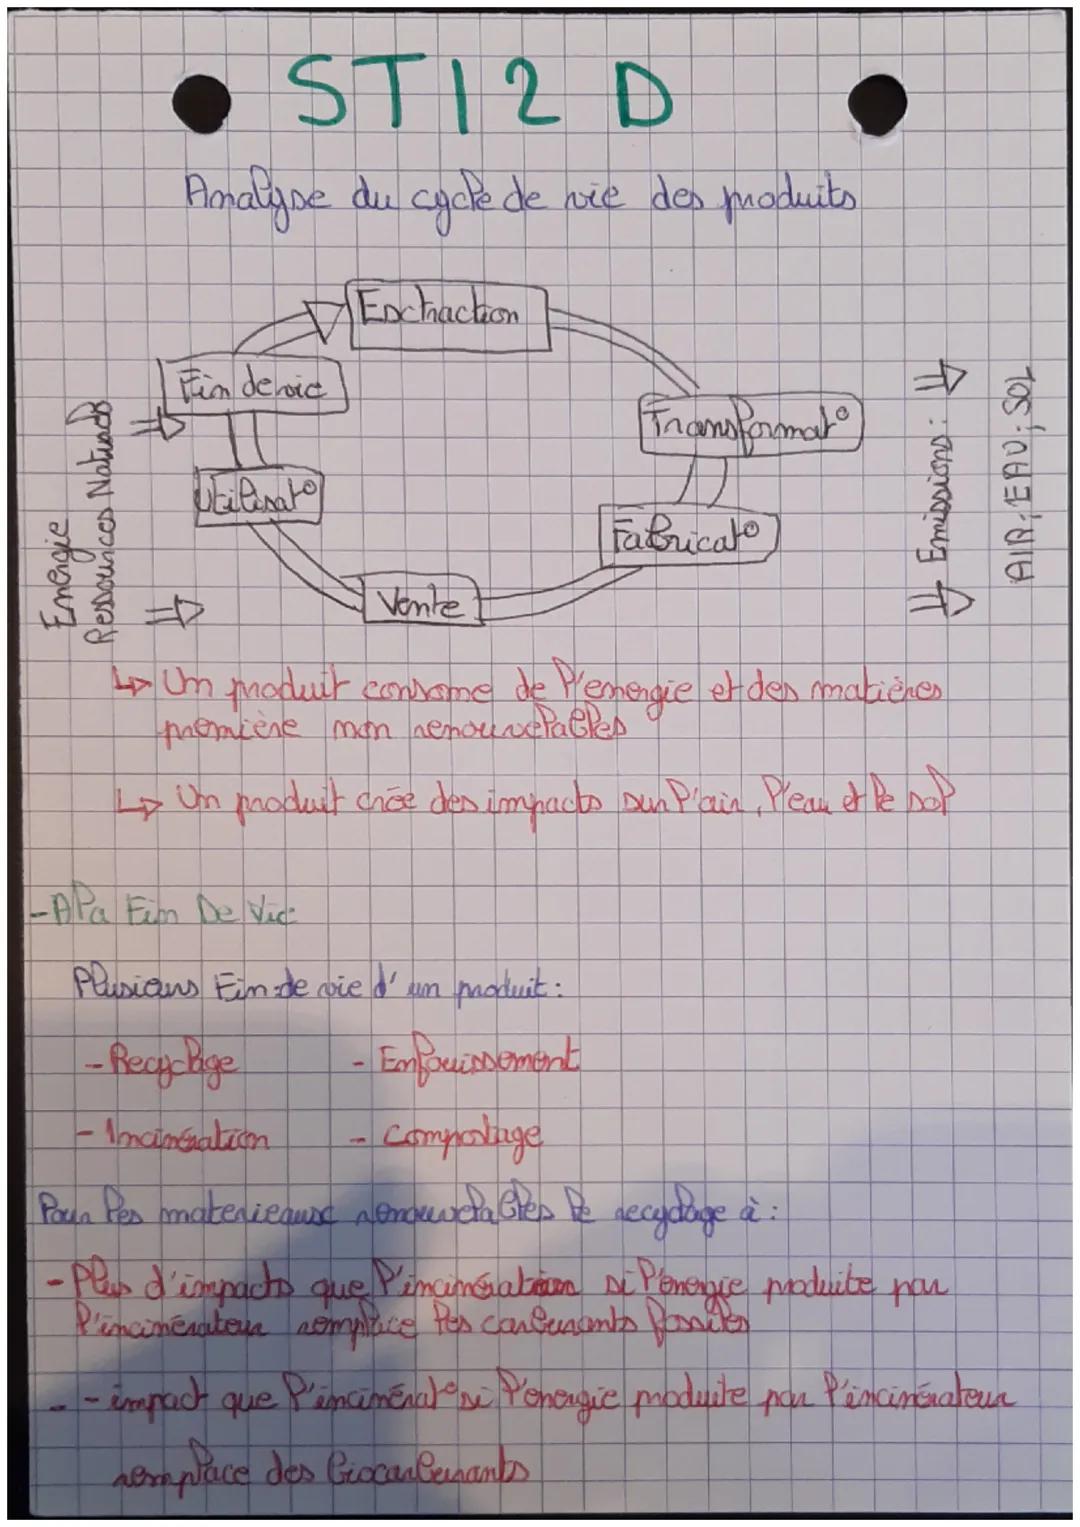 STI2D
Analyse du cycle de vie des produits
Exctraction
Fin de vie
Transformat°
Utilisat°
Fabricat°
Vente
Energie
Ressources Naturels
Emissions :
AIR ; EAU ; SOL
↳ Un produit consome de l'energie et des matières
première non renouvelables
↳ Un produit crée des impacts sur l'air, l'eau et le sol
- A la Fin De Vie
Plusieurs Fin de vie d'un produit :
- Recyclage
- Enfouissement
- Incinération
- Compostage
Pour les materieaux renouvelables le recyclage à :
- Plus d'impacts que l'incinération si l'énergie produite par
l'incinérateur remplace les carburants fossiles
- - impact que l'incinérat° si l'énergie produite par l'incinérateur
remplace des biocarburants